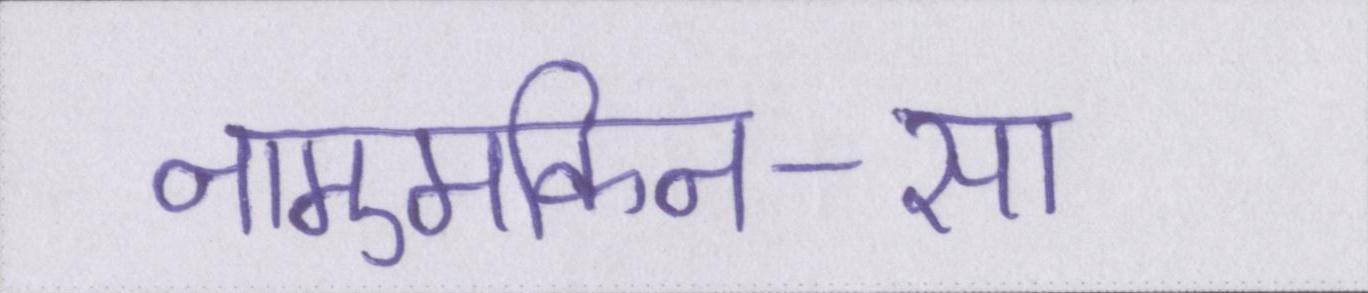 नामुमकिन-सा